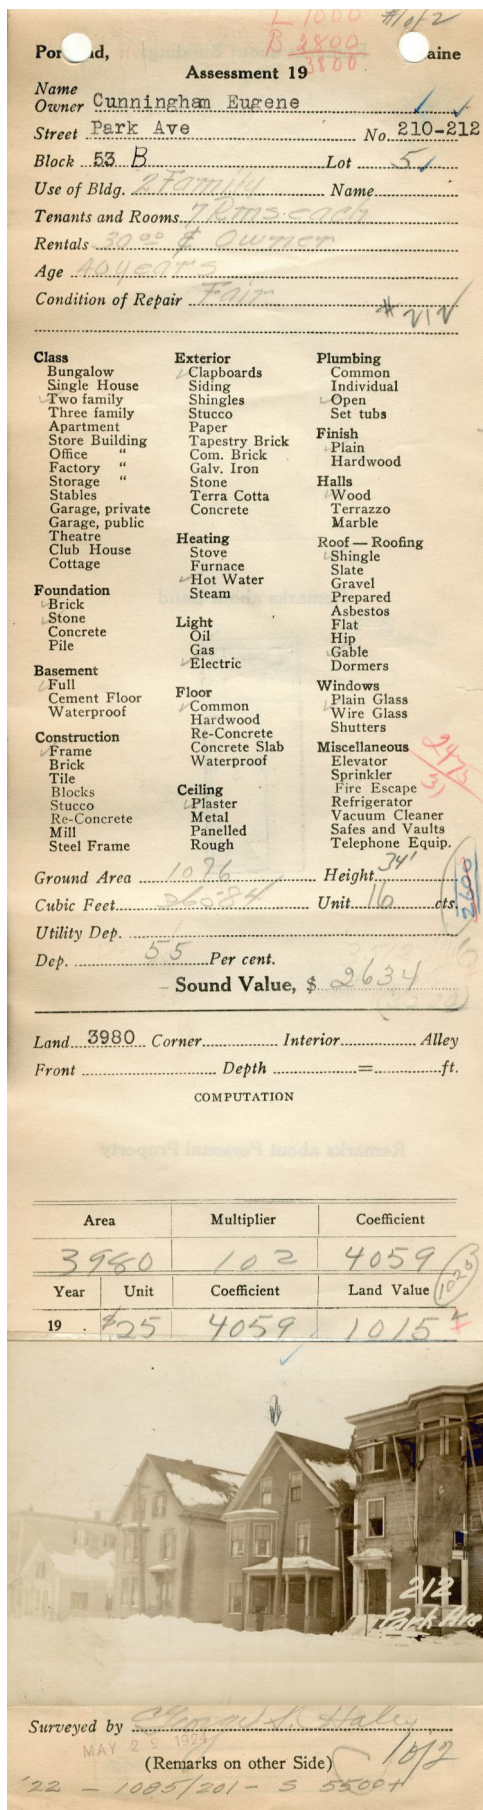 L 1000 #1 of 2
B 2800
3800.
Portland, Maine
Assessment 19
Name
Owner Cunningham Eugene
Street Park Ave No. 210-212
Block 53 B Lot 5
Use of Bldg. 2 Family Name
Tenants and Rooms 7 Rms. each
Rentals 30 00 & Owner
Age 40 years
Condition of Repair Fair
#212
Class
Bungalow
Single House
Two family
Three family
Apartment
Store Building
Office "
Factory "
Storage "
Stables
Garage, private
Garage, public
Theatre
Club House
Cottage
Foundation
Brick
Stone
Concrete
Pile
Basement
Full
Cement Floor
Waterproof
Construction
Frame
Brick
Tile
Blocks
Stucco
Re-Concrete
Mill
Steel Frame
Exterior
Clapboards
Siding
Shingles
Stucco
Paper
Tapestry Brick
Com. Brick
Galv. Iron
Stone
Terra Cotta
Concrete
Heating
Stove
Furnace
Hot Water
Steam
Light
Oil
Gas
Electric
Floor
Common
Hardwood
Re-Concrete
Concrete Slab
Waterproof
Ceiling
Plaster
Metal
Panelled
Rough
Plumbing
Common
Individual
Open
Set tubs
Finish
Plain
Hardwood
Halls
Wood
Terrazzo
Marble
Roof — Roofing
Shingle
Slate
Gravel
Prepared
Asbestos
Flat
Hip
Gable
Dormers
Windows
Plain Glass
Wire Glass
Shutters
Miscellaneous
Elevator
Sprinkler
Fire Escape
Refrigerator
Vacuum Cleaner
Safes and Vaults
Telephone Equip.
Ground Area 1076 Height 34'
Cubic Feet 36584 Unit 16 cts.
2600
Utility Dep.
Dep. 55 Per cent.
Sound Value, $ 2634
Land 3980 Corner Interior Alley
Front Depth = ft.
COMPUTATION
Area Multiplier Coefficient
3980 102 4059
Year Unit Coefficient Land Value 1025
19 $25 4059 1015
212
Park Ave
Surveyed by George S. Haley
MAY 29 1924
(Remarks on other Side) 1 of 2
'22 - 1085/201 - S 5500+